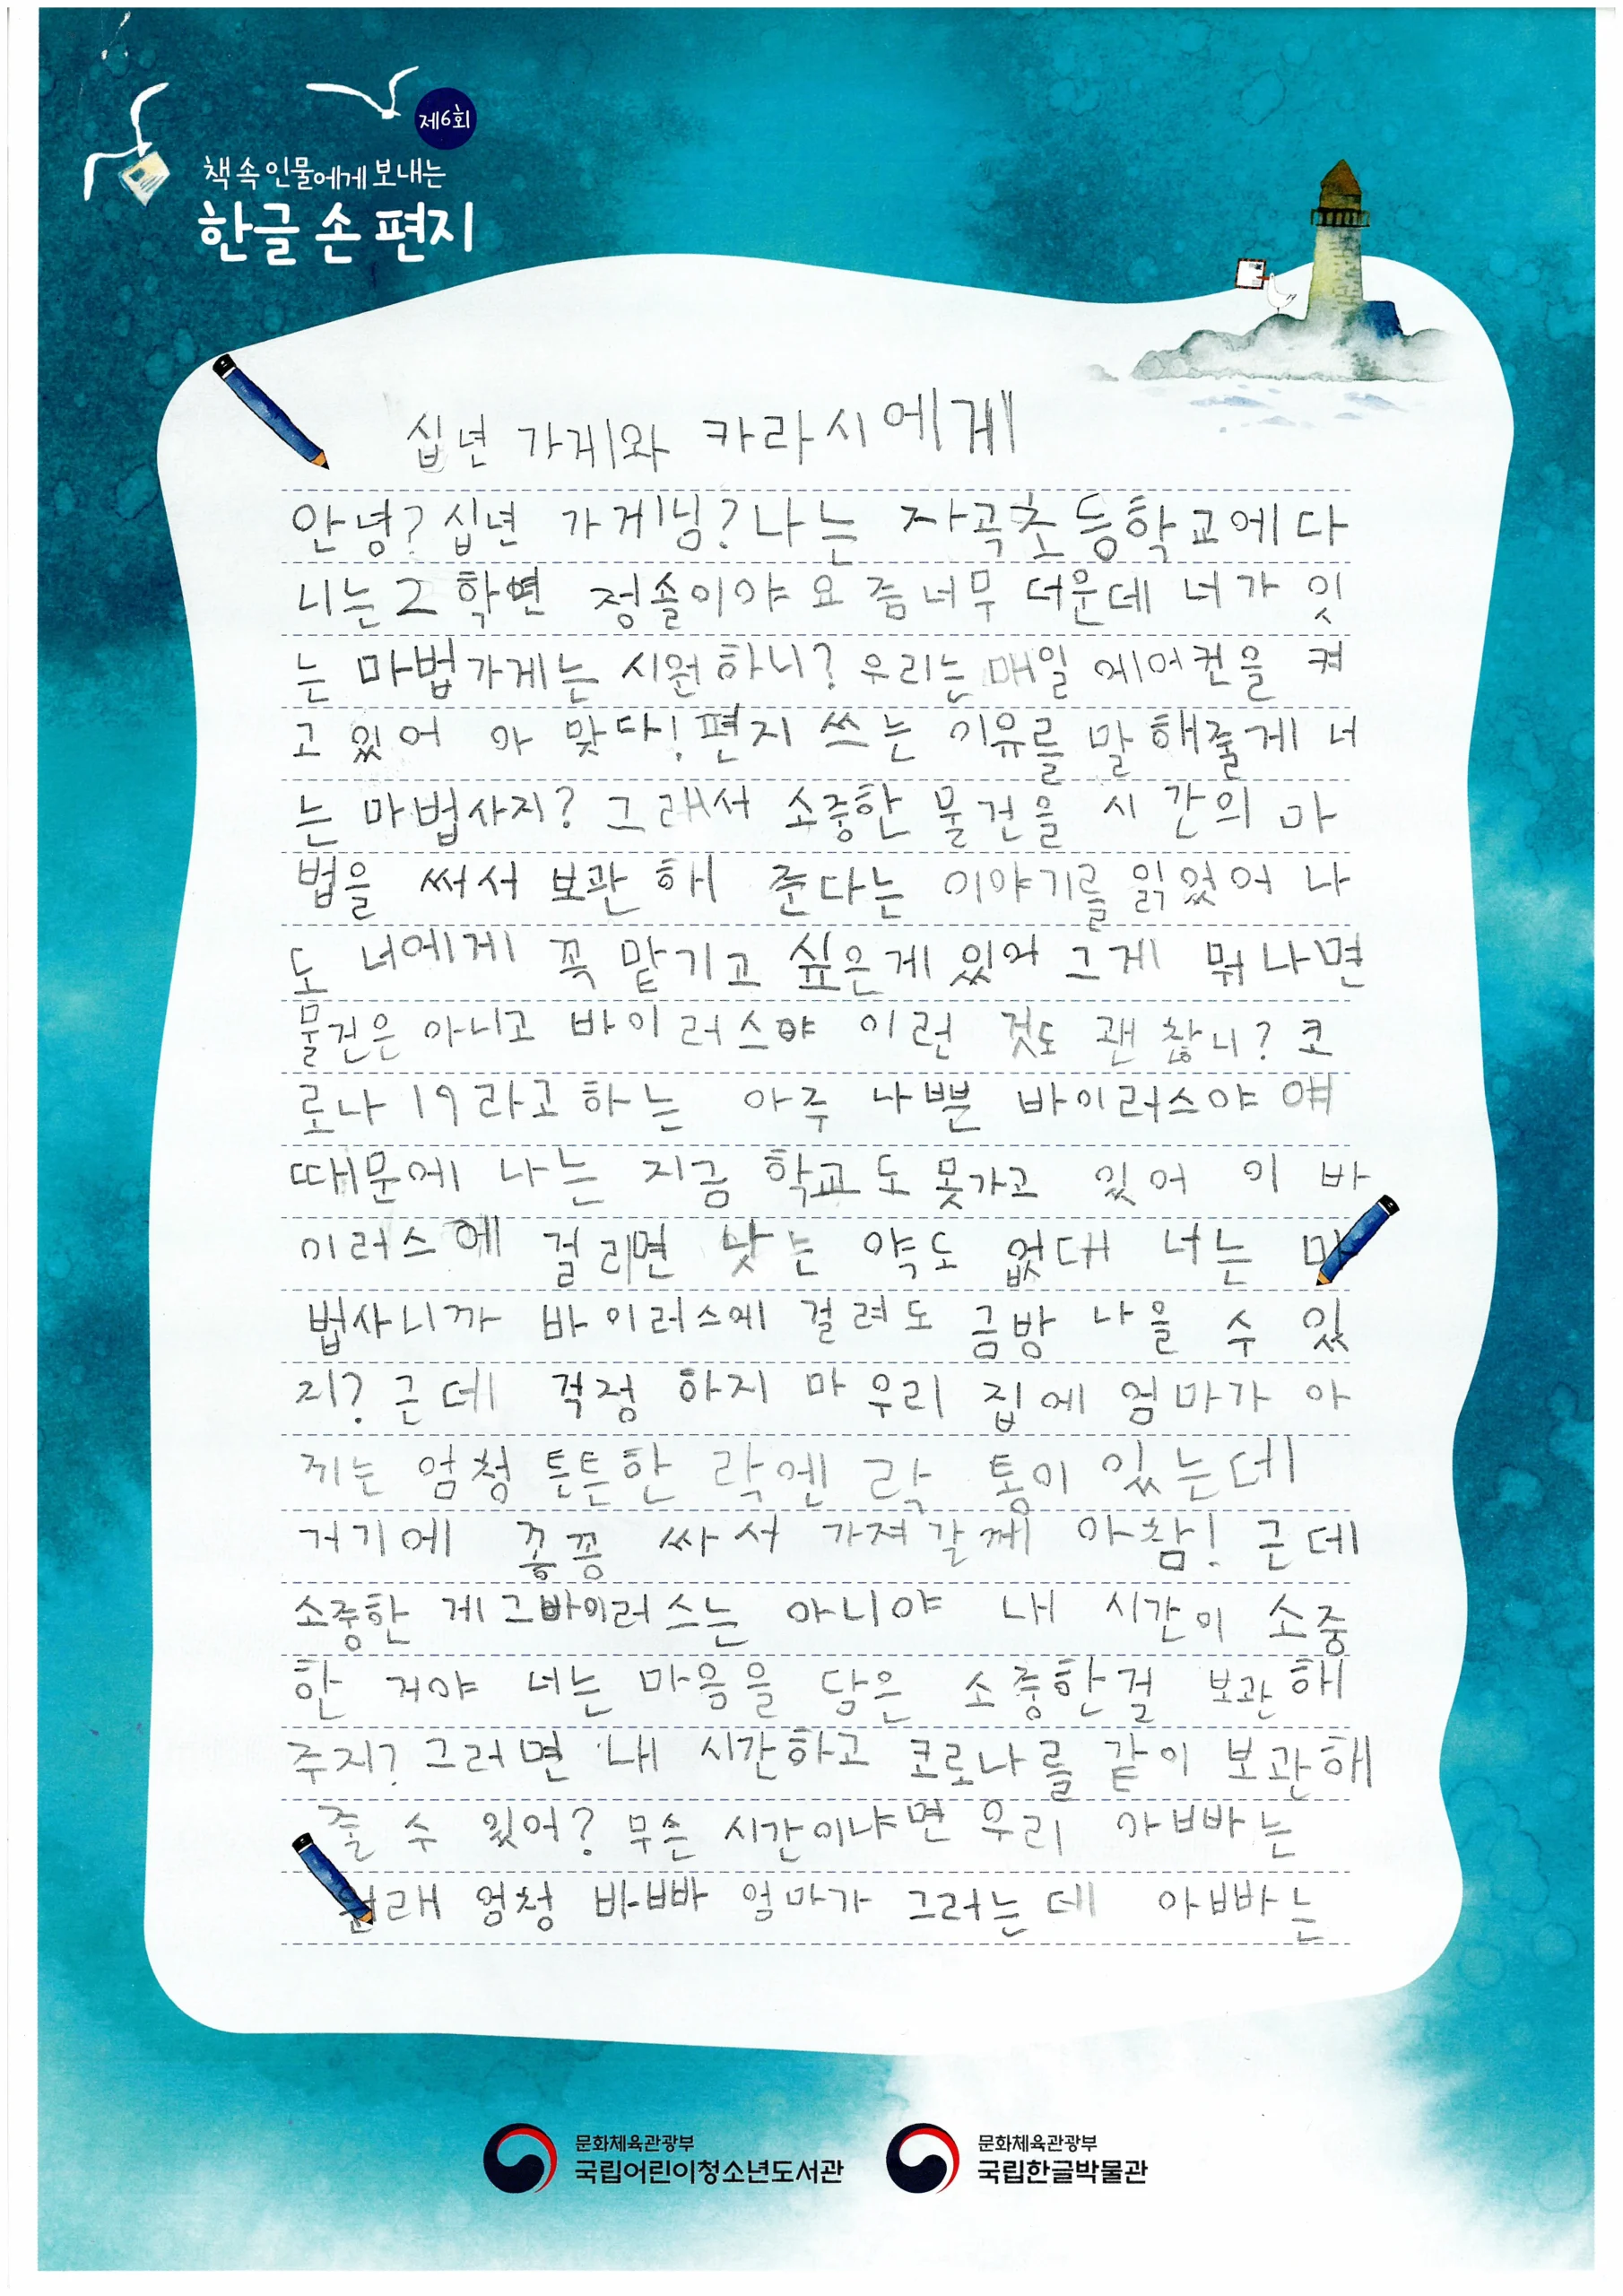 제6회
책 속 인물에게 보내는
한글 손 편지
십년 가게와 카라시에게
안녕? 십년 가게님? 나는 자곡초등학교에 다
니는 2학년 정솔이야 요즘 너무 더운데 너가 잇
는 마법가게는 시원하니? 우리는 매일 에어컨을 켜
고 있어 아 맞다! 편지 쓰는 이유를 말해줄게 너
는 마법사지? 그래서 소중한 물건을 시간의 마
법을 써서 보관해 준다는 이야기를 읽었어 나
도 너에게 꼭 맡기고 싶은게 있어 그게 뭐냐면
물건은 아니고 바이러스야 이런 것도 괜찮니? 코
로나 19라고 하는 아주 나쁜 바이러스야 얘
때문에 나는 지금 학교도 못가고 있어 이 바
이러스에 걸리면 낫는 약도 없대 너는 마
법사니까 바이러스에 걸려도 금방 나을 수 있
지? 근데 걱정 하지 마 우리 집에 엄마가 아
끼는 엄청 튼튼한 락엔락 통이 있는데
거기에 꽁꽁 싸서 가져갈께 아참! 근데
소중한 게 그바이러스는 아니야 내 시간이 소중
한 거야 너는 마음을 담은 소중한걸 보관해
주지? 그러면 내 시간하고 코로나를 같이 보관해
줄 수 있어? 무슨 시간이냐면 우리 아빠는
원래 엄청 바빠 엄마가 그러는데 아빠는
문화체육관광부
국립어린이청소년도서관
문화체육관광부
국립한글박물관